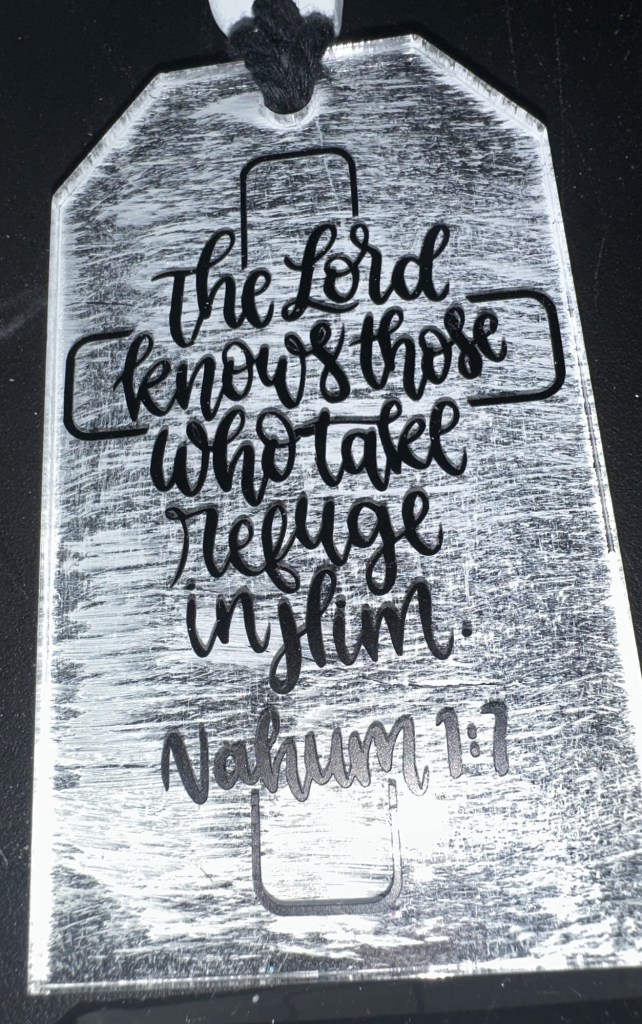 The Lord
knows those
who take
refuge
in Him.
Nahum 1:7